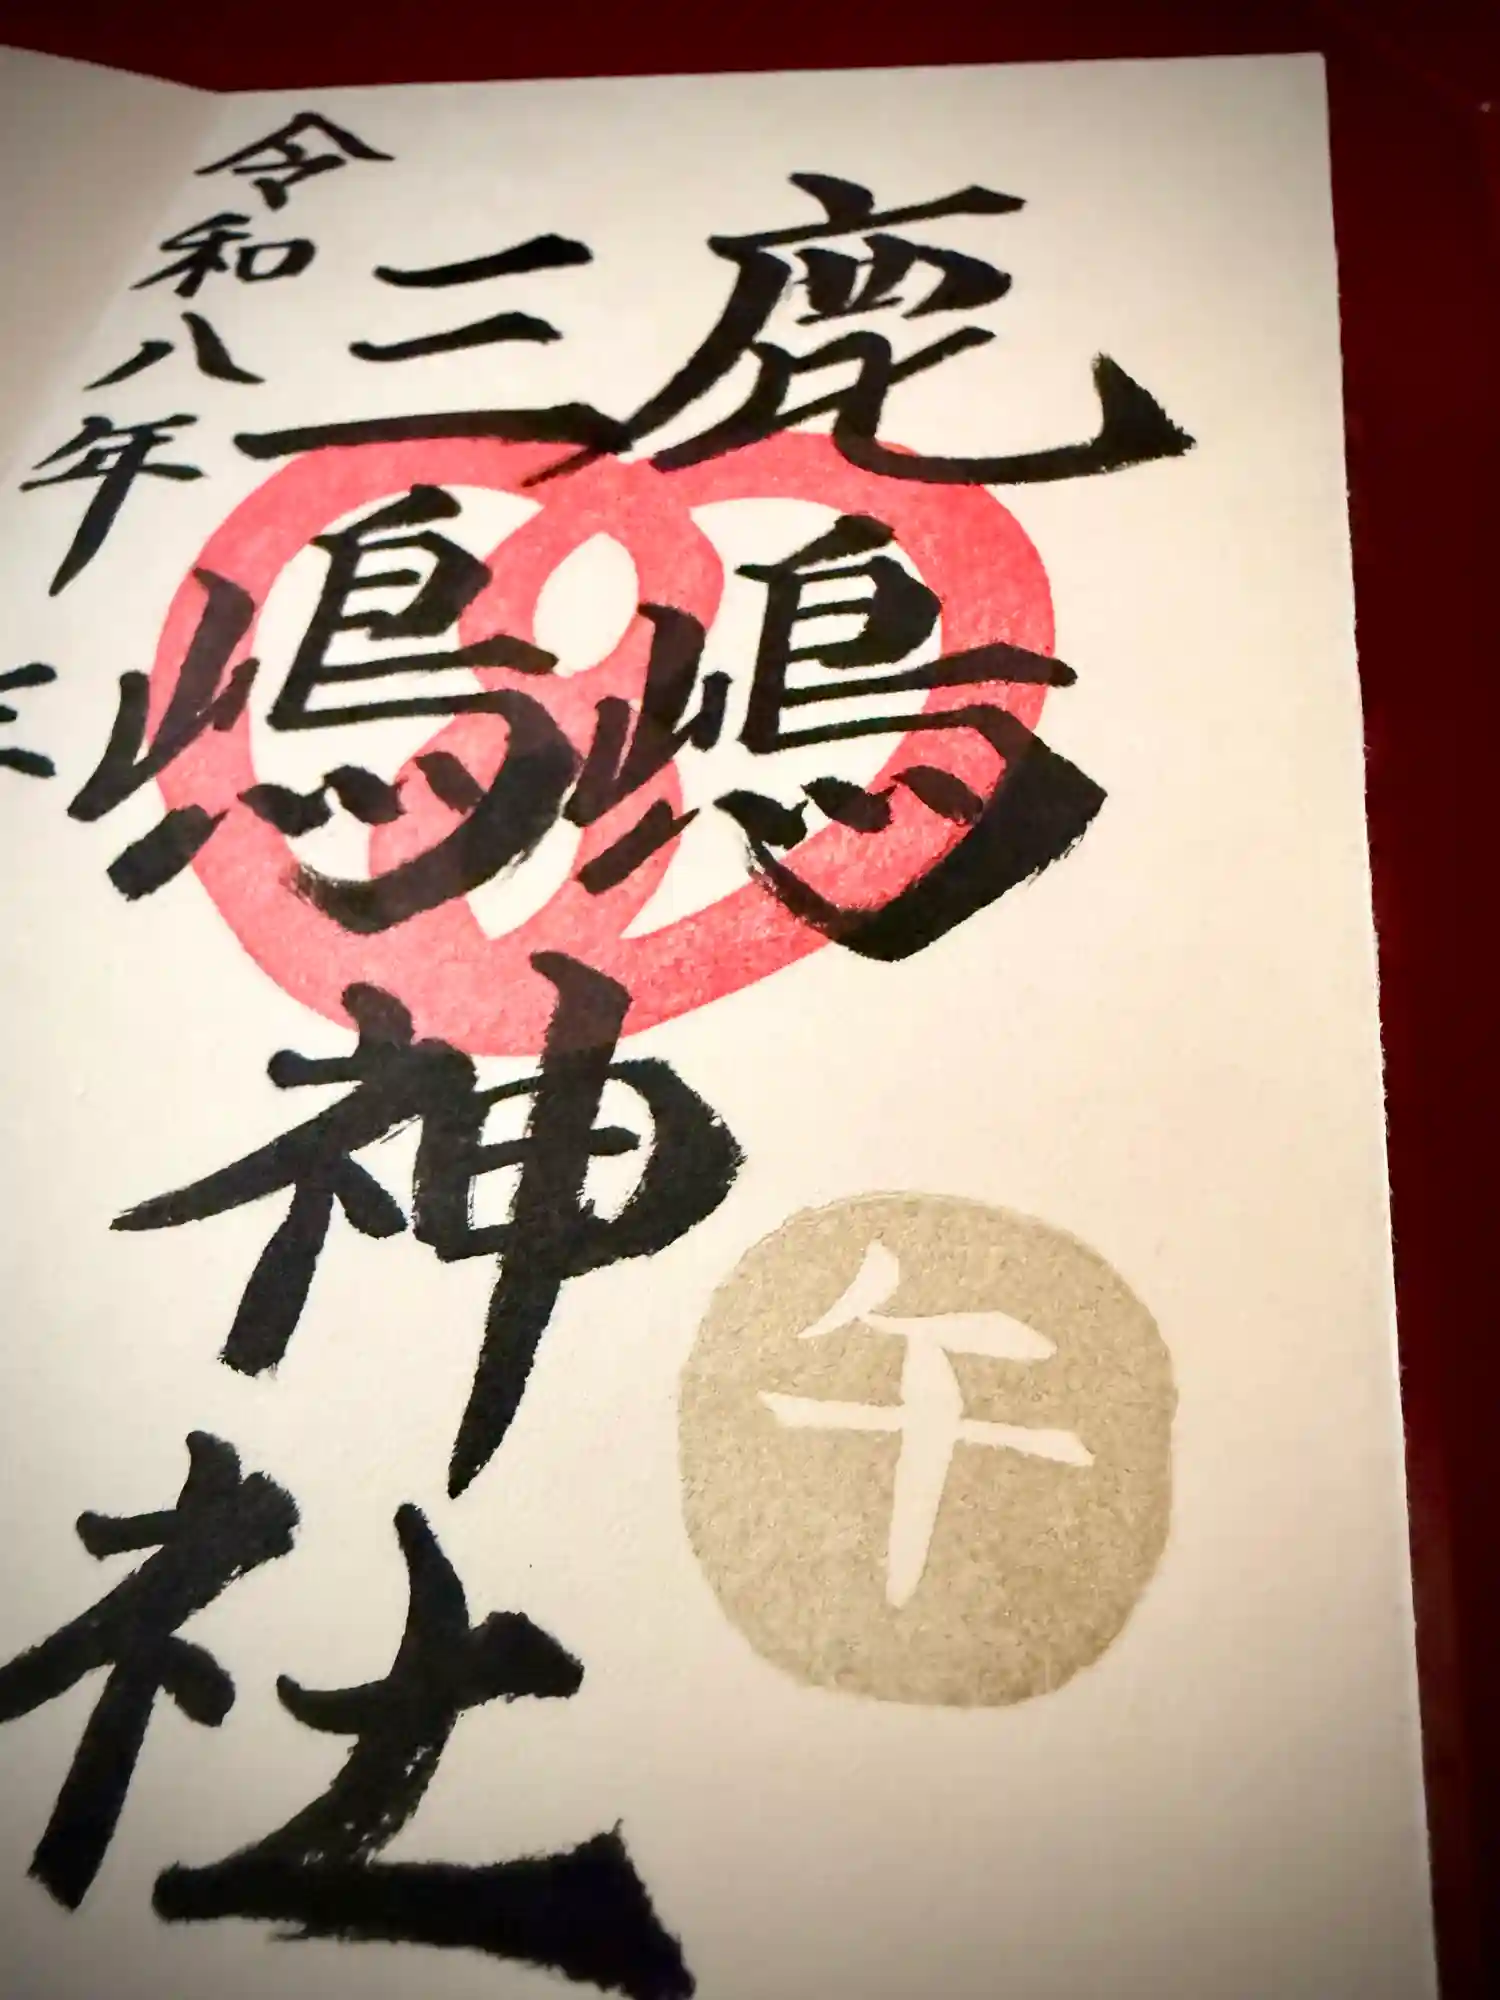 鹿嶋
三嶋
神社
午
令和八年